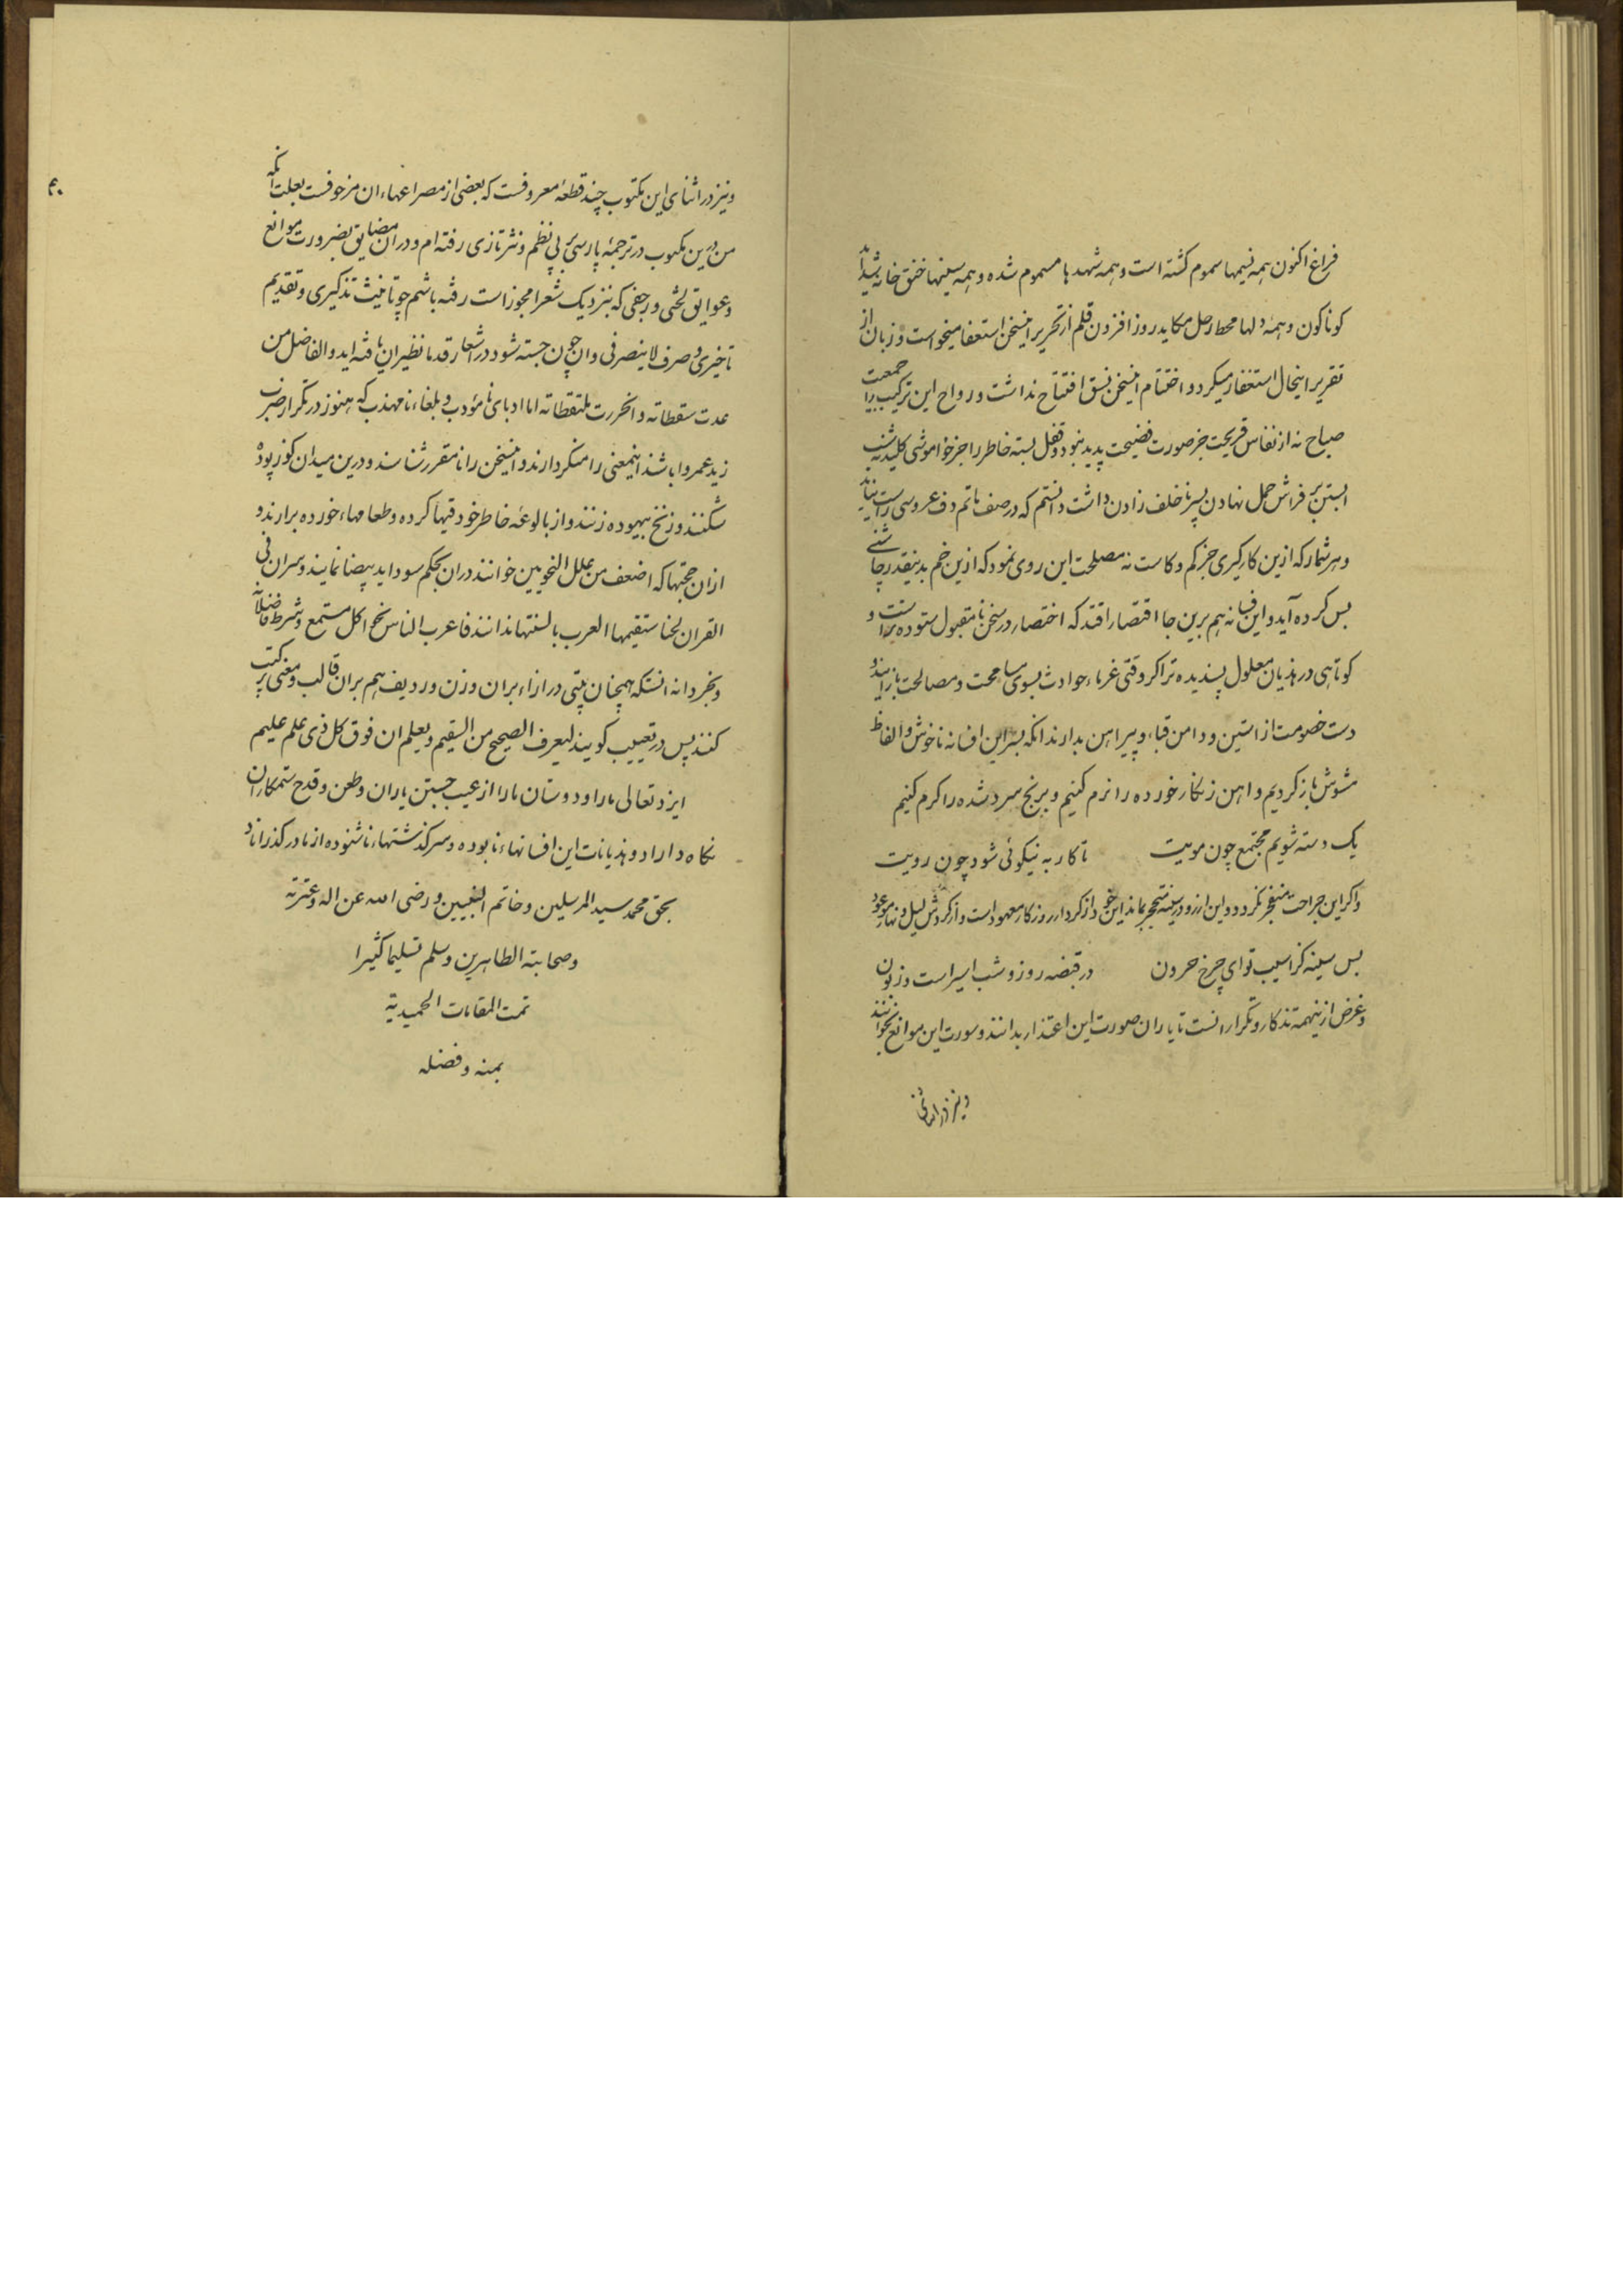 فراغ اکنون همه نسیمها سموم کشته است و همه شهدها مسموم شده و همه سینها خنق خانه شداید
کوناکون و همه دلها محط رحل مکاید روز افزون قلم از تحریر اینسخن استعفا میخواست و زبان از
تقریر اینحال استغفار میکرد و اختتام اینسخن نسق افتتاح نداشت و رواح این ترکیب را جمعیت
صباح نه از نفاس قریحت جز صورت فضیحت پدید نبود و قفل بسته خاطر را جز خواموشی کلید نه شب
ابستن بر فراش حمل نهادن پسر ناخلف زادن داشت دانستم که در صف ماتم دف عروسی راست نیاید
و هر شمار که ازین کار کیری جز کم و کاست نه مصلحت این روی نمود که ازین خم بدینقدر چاشنی
بس کرده آید و این فسانه هم برین جا اقتصار افتد که اختصار در سخن نامقبول ستوده تر است و
کوتاهی در هذیان معلول پسندیده تر اکر وقتی غرماء حوادث بسوی مسامحت و مصالحت باز ایند و
دست خصومت از استین و دامن قباء و پیراهن بدارند انکه بسر این افسانه ناخوش و الفاظ
مشوش باز کردیم و اهن زنکار خورده را نرم کنیم و برنج سرد شده را کرم کنیم
یک دسته شویم مجتمع چون مویت تا کار به نیکوئی شود چون رویت
و اکر این جراحت منفجر نکردد و این ارزو در سینه متحجر بماند این خود از کردار روزکار معهود است و از کردش لیل و نهار موعود
بس سینه کز اسیب تو ای چرخ حرون در قبضه روز و شب اسیر است و زبون
و غرض از ینهمه تذکار و تکرار انست تا یاران صورت این اعتذار بدانند و سورت این موانع بخوانند
و نیز در اثنای
۴۰
و نیز در اثنای این مکتوب چند قطعه معروفست که بعضی از مصراعهاء ان مزحوفست بعلت انکه
من درین مکتوب در ترجمهٔ پارسی پی نظم و نثر تازی رفته ام و در ان مضایق بضرورت موانع
و عوایق لختی و زحفی که بنزدیک شعرا مجوز است رفته باشم چو تانیث تذکیری و تقدیم
تاخیری و صرف لاینصرفی و ان چون جسته شود در اشعار قدما نظیر ان یافته اید و الفاضل من
عدت سقطاته و انحررت ملتقطاته اما ادبای نامؤدب و بلغاء نامهذب که هنوز در تکرار ضرب
زید عمروا باشند اینمعنی را منکر دارند و اینسخن را نامقرر شناسند و درین میدان کوز پوده
شکنند و زنخ بیهوده زنند و از بالوعه خاطر خود قیها کرده و طعامهاء خورده برارند و
ازان حجتها که اضعف من علل النحویین خوانند دران بحکم سودا ید بیضا نمایند و سر ان فی
القران لحنا ستقیمها العرب بالسنتها ندانند فاعرب الناس نحج اکل مستمع و شرط فاضلانه
و بخردانه انستکه همچنان بیتی در ازاء بران وزن و ردیف هم بران قالب و معنی ترکیب
کنند پس در تعییب کویند لیعرف الصحیح من السقیم و یعلم ان فوق کل ذی علم علیم
ایزد تعالی ما را و دوستان ما را از عیب جستن یاران و طعن و قدح ستمکاران
نکاه داراد و هذیانات این افسانهاء نابوده و سرکذشتهاء ناشنوده از ما در کذراناد
بحق محمد سید المرسلین و خاتم النبیین و رضی الله عن اله و عترته
و صحابته الطاهرین و سلم تسلیما کثیرا
تمت المقامات الحمیدیة
بمنه و فضله